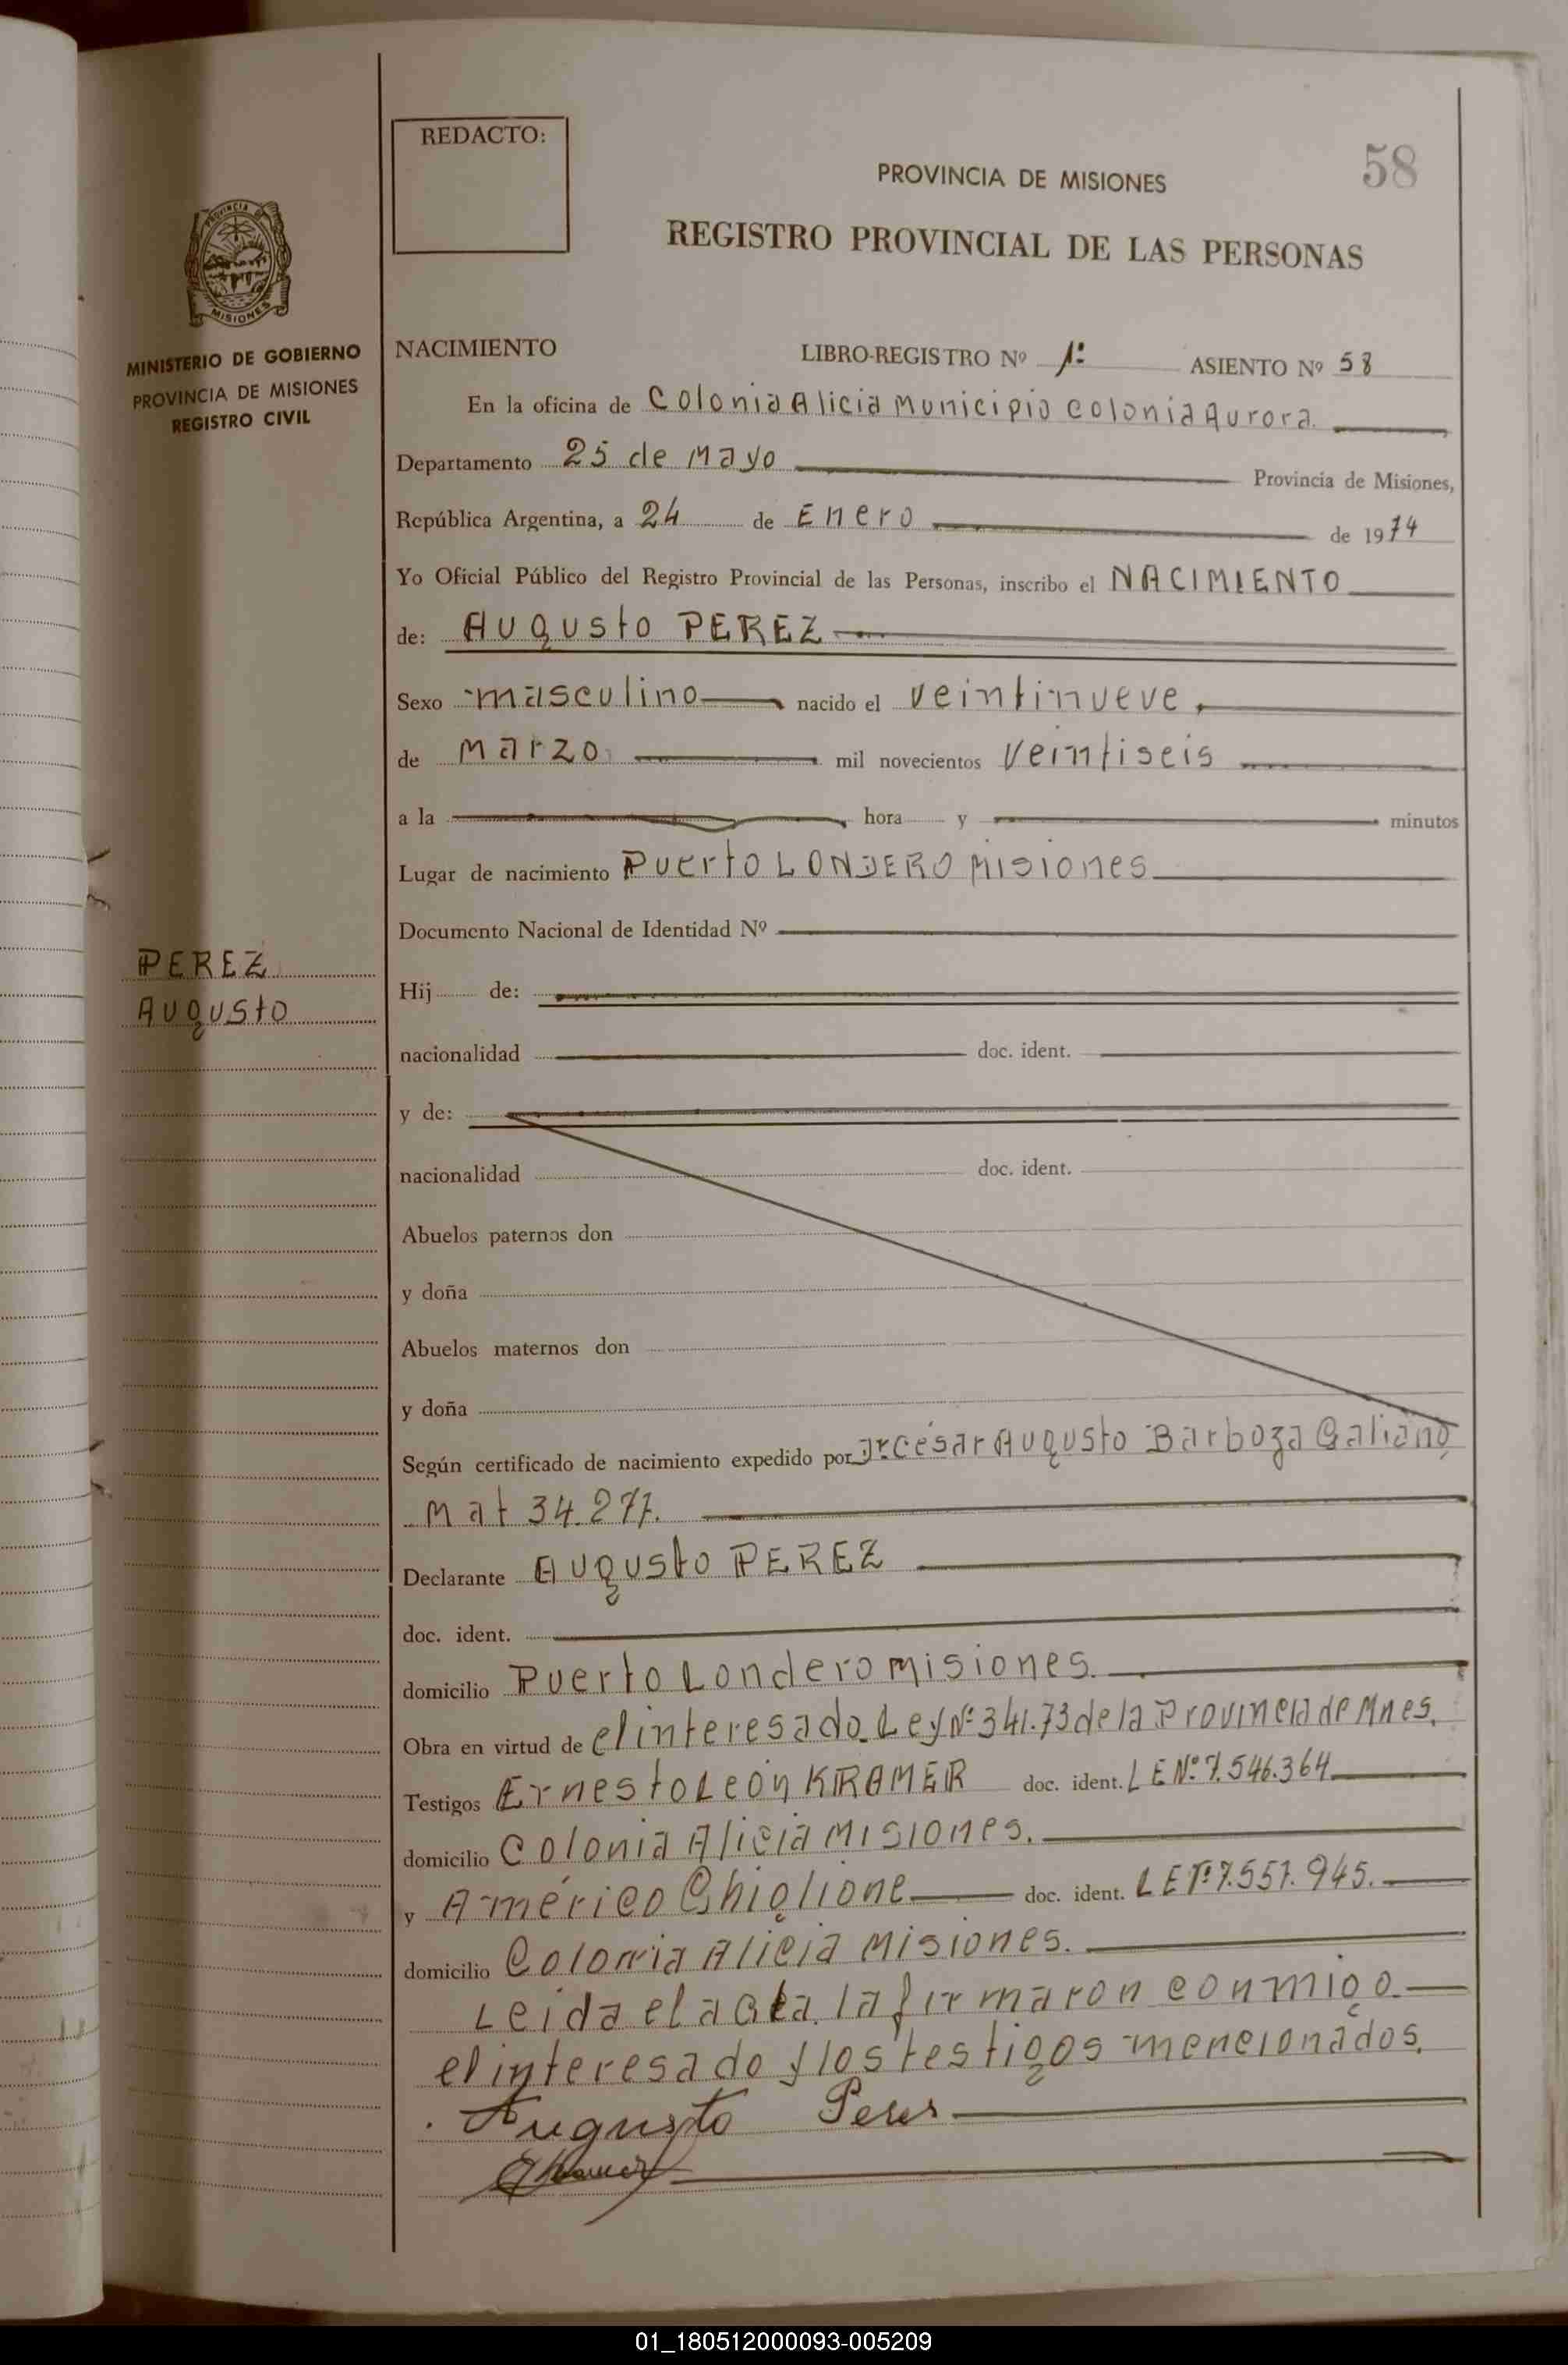 REDACTO:
58
PROVINCIA DE MISIONES
REGISTRO PROVINCIAL DE LAS PERSONAS
PROVINCIA DE
MISIONES
MINISTERIO DE GOBIERNO
PROVINCIA DE MISIONES
REGISTRO CIVIL
NACIMIENTO LIBRO-REGISTRO Nº 1º ASIENTO Nº 58
En la oficina de Colonia Alicia Municipio Colonia Aurora.
Departamento 25 de Mayo Provincia de Misiones,
República Argentina, a 24 de Enero de 1974
Yo Oficial Público del Registro Provincial de las Personas, inscribo el NACIMIENTO
de: Augusto PEREZ
Sexo masculino nacido el veintinueve
de Marzo mil novecientos Veintiseis
a la hora y minutos
Lugar de nacimiento Puerto LONDERO Misiones
Documento Nacional de Identidad Nº
PEREZ
Augusto
Hij de:
nacionalidad doc. ident.
y de:
nacionalidad doc. ident.
Abuelos paternos don
y doña
Abuelos maternos don
y doña
Según certificado de nacimiento expedido por Dr César Augusto Barboza Galiano
Mat 34.277.
Declarante Augusto PEREZ
doc. ident.
domicilio Puerto Londero Misiones.
Obra en virtud de el interesado. Ley Nº 341.73 de la Provincia de Mnes.
Testigos Ernesto León KRAMER doc. ident. L E Nº 7.546.364
domicilio Colonia Alicia Misiones.
y Américo Ghiglione doc. ident. L E 7.557.945.
domicilio Colonia Alicia Misiones.
Leida el acta, la firmaron conmigo
el interesado y los testigos mencionados.
Augusto Peres
01_180512000093-005209